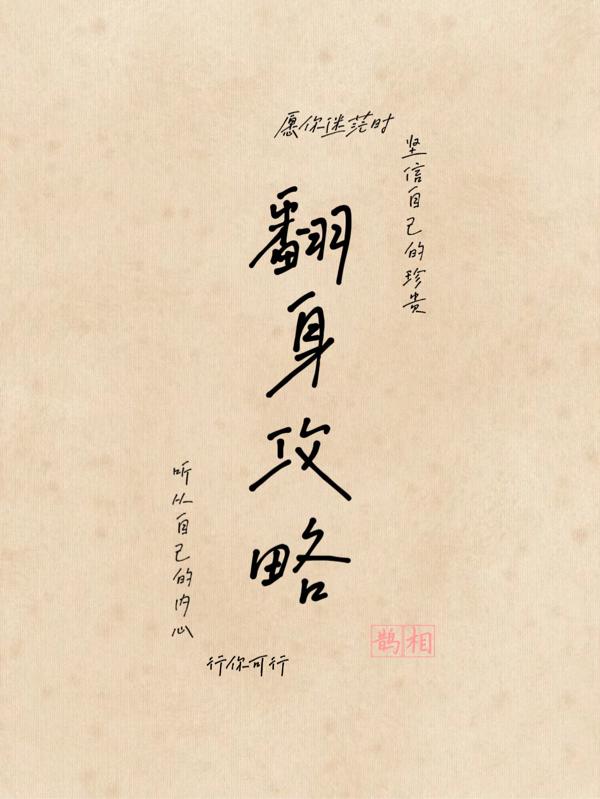 愿你迷茫时
坚信自己的珍贵
翻身攻略
听从自己的内心
行你可行
鹊相